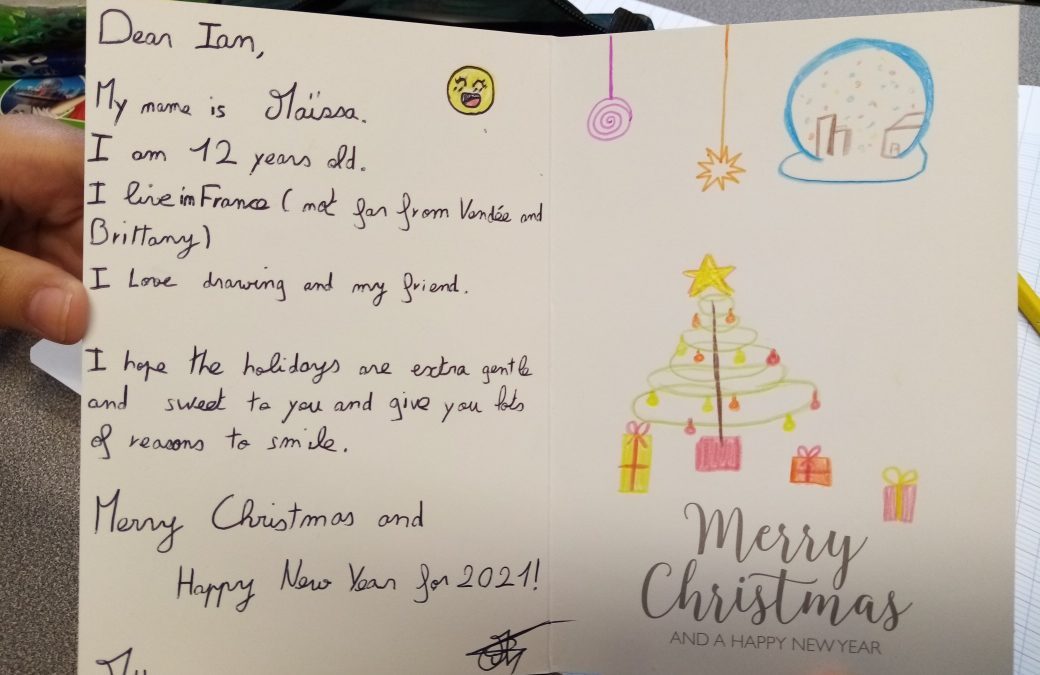 Dear Ian,
My name is Maïssa.
I am 12 years old.
I live in France (not far from Vendée and
Brittany)
I Love drawing and my friend.
I hope the holidays are extra gentle
and sweet to you and give you lots
of reasons to smile.
Merry Christmas and
Happy New Year for 2021!
Merry
Christmas
AND A HAPPY NEW YEAR